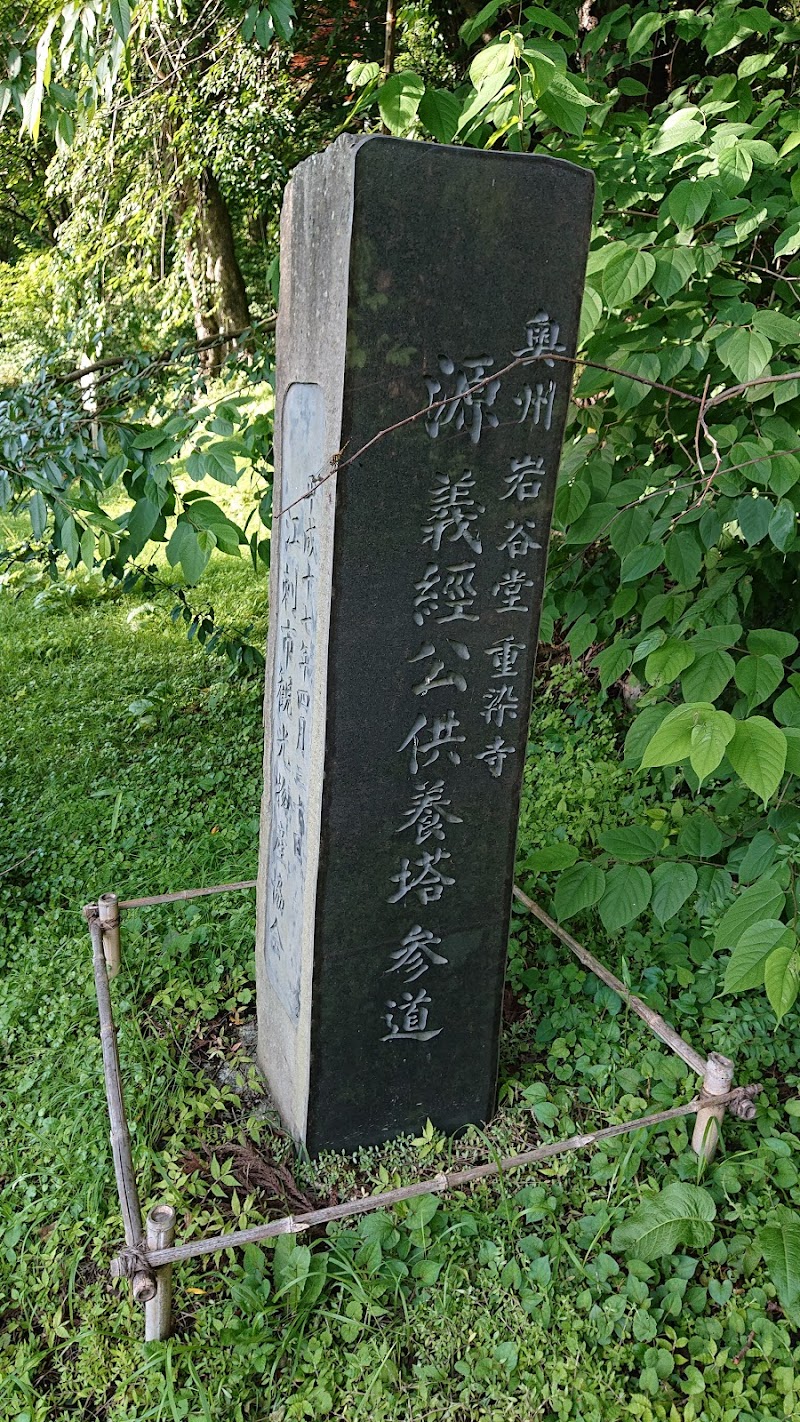 奥州岩谷堂重染寺
源義經公供養塔参道
平成十一年四月 日
江刺市観光物産協会